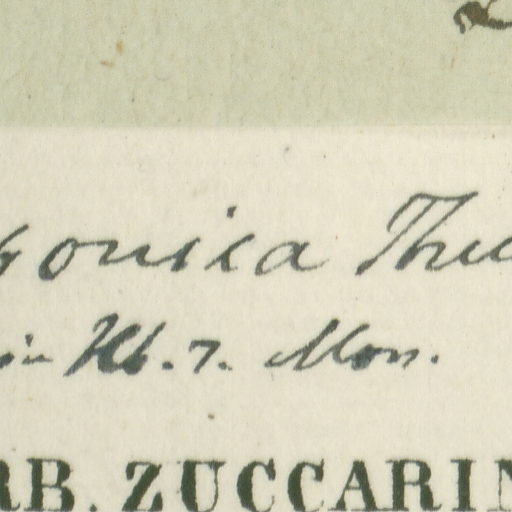 ponica Thu
in Hb. 7. Mon.
RB. ZUCCARIN